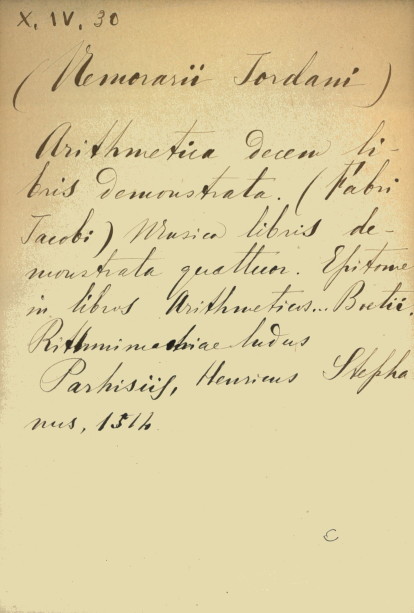 X. IV. 30
(Nemorarii Jordani)
Arithmetica decem li-
bris demonstrata. (Fabri
Jacobi) Musica libris de-
monstrata quattuor. Epitome
in libros Arithmeticos... Boetii.
Rithmimachiae ludus
Parhisiis, Henricus Stepha
nus, 1514
C